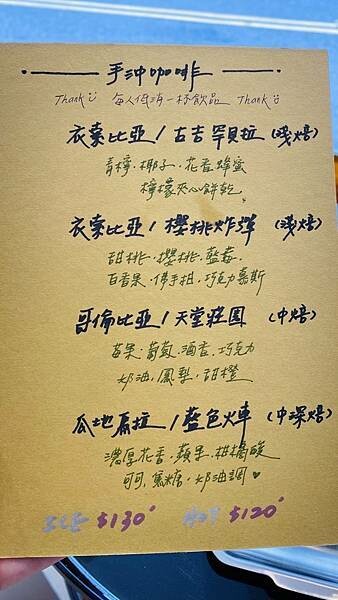 手沖咖啡
Thank 每人低消一杯飲品 Thank
衣索比亞/古吉罕貝拉 (淺焙)
青檸·椰子·花香蜂蜜
檸檬夾心餅乾。
衣索比亞/櫻桃炸彈 (淺焙)
甜桃·櫻桃·藍莓·
百香果·佛手柑·巧克力慕斯
哥倫比亞/天堂莊園 (中焙)
莓果·葡萄·酒香·巧克力
奶油,鳳梨·甜橙
瓜地馬拉/藍色火車 (中深焙)
濃厚花香·蘋果·柑橘酸
可可,焦糖·奶油調♥
ICE $130 HOT $120